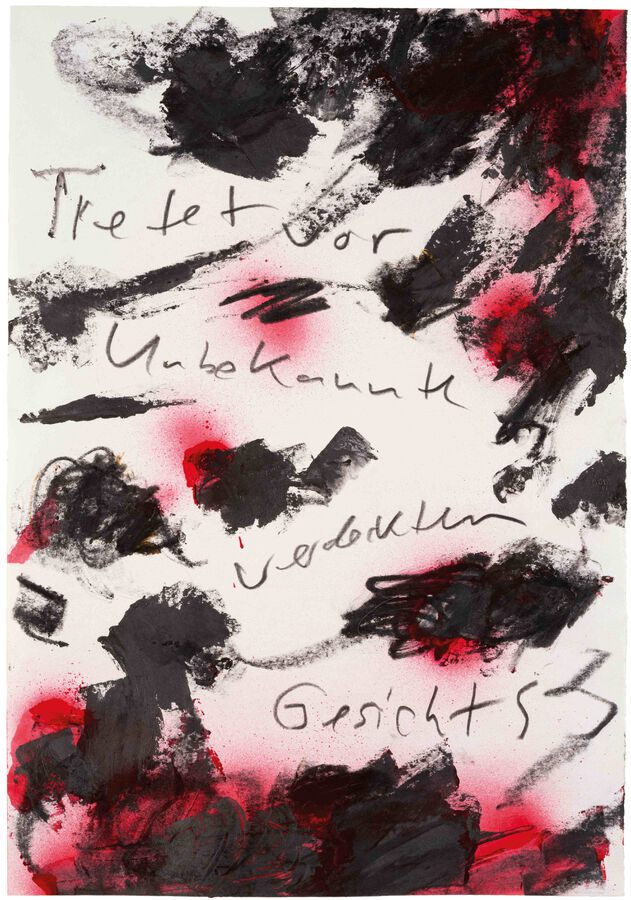 Tretet vor
Unbekannte
verdeckten
Gesichts